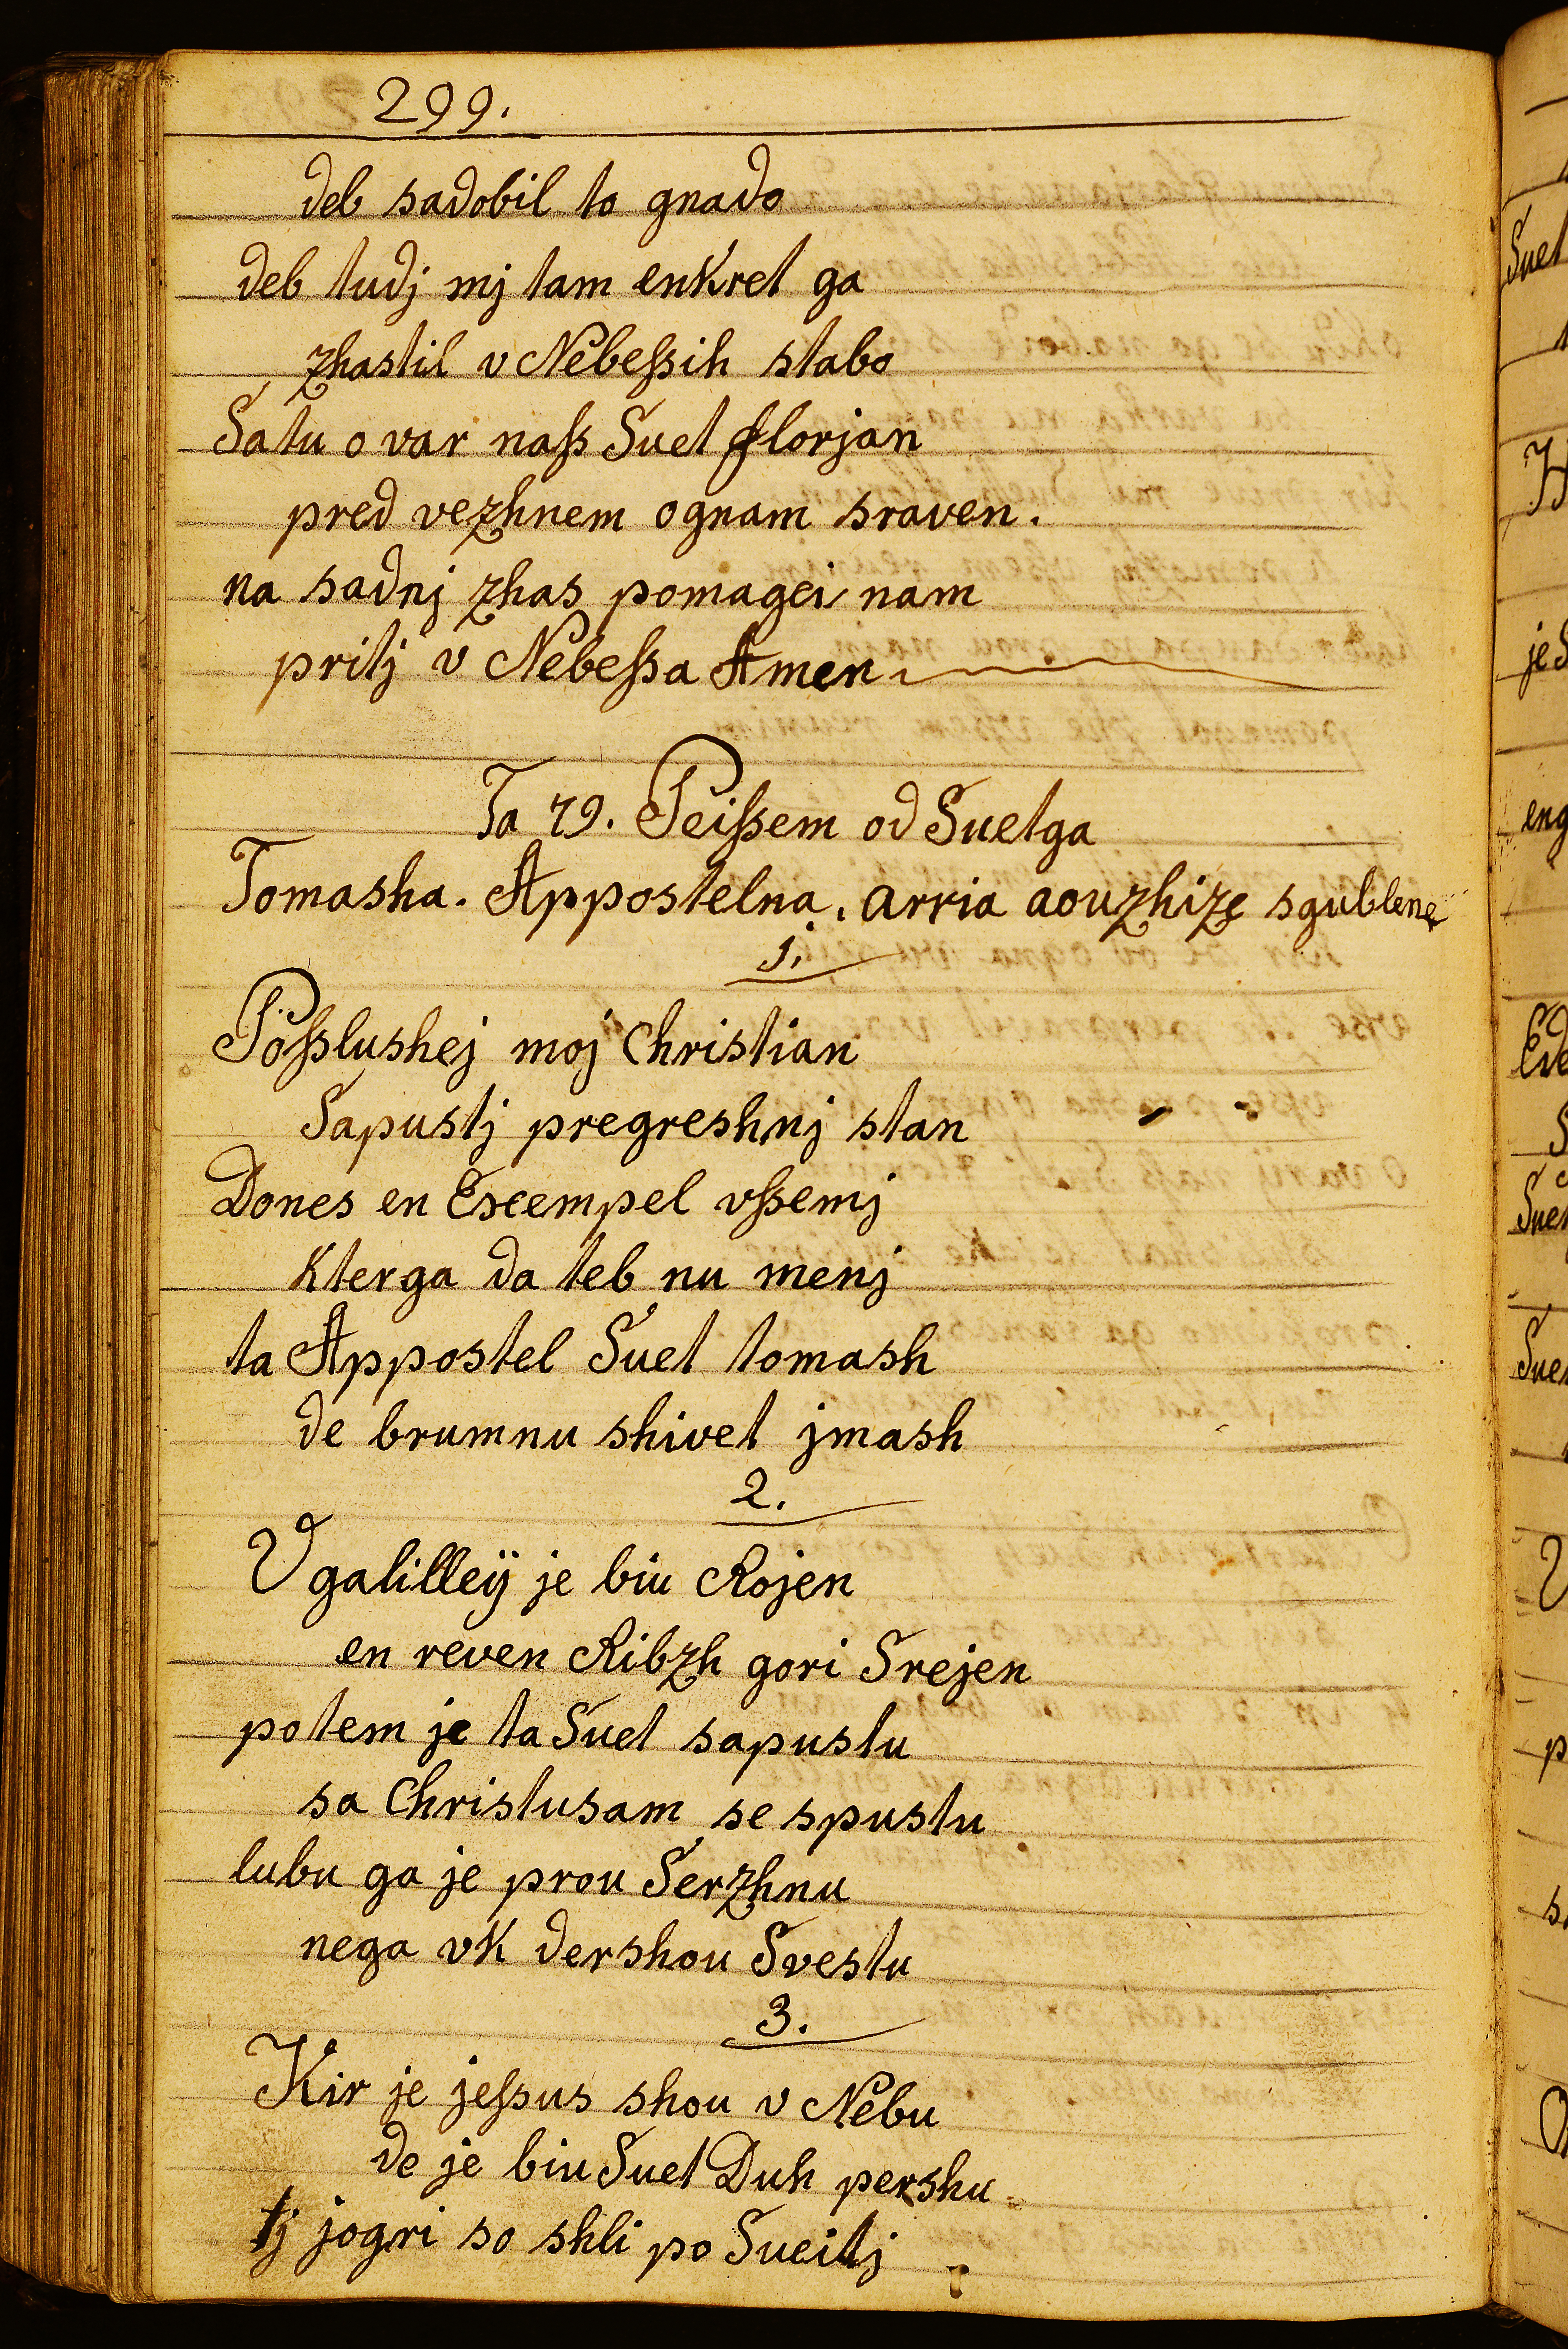 299.
deb sadobil to gnado
deb tudj mj tam enkret ga
zhastil v Nebeſsih stabo
Satu o var naſs Suet florjan
pred vezhnem ognam sraven.
na sadnj zhas pomagei nam
pritj v Nebeſsa Amen
Ta 79. Peiſsem od Suetga
Tomasha. Appostelna. arria aouzhize sgublene
1.
Poſslushej moj Christian
Sapustj pregreshnj stan
Dones en Exempel vſsemj
kterga da teb nu menj
ta Appostel Suet tomash
de brumnu shivet jmash
2.
V galilleÿ je biu Rojen
en reven Ribzh gori Srejen
potem je ta Suet sapustu
sa Christusam se spustu
lubu ga je prou Serzhnu
nega vk dershou Svestu
3.
Kir je jeſsus shou v Nebu
de je biu Suet Duh pershu
tj jogri so shli po Sueitj